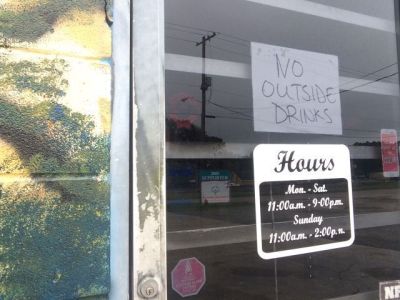 NO
OUTSIDE
DRINKS
Hours
Mon. - Sat.
11:00a.m. - 9:00p.m.
Sunday
11:00a.m. - 2:00p.m.
SUPPORTER
NF